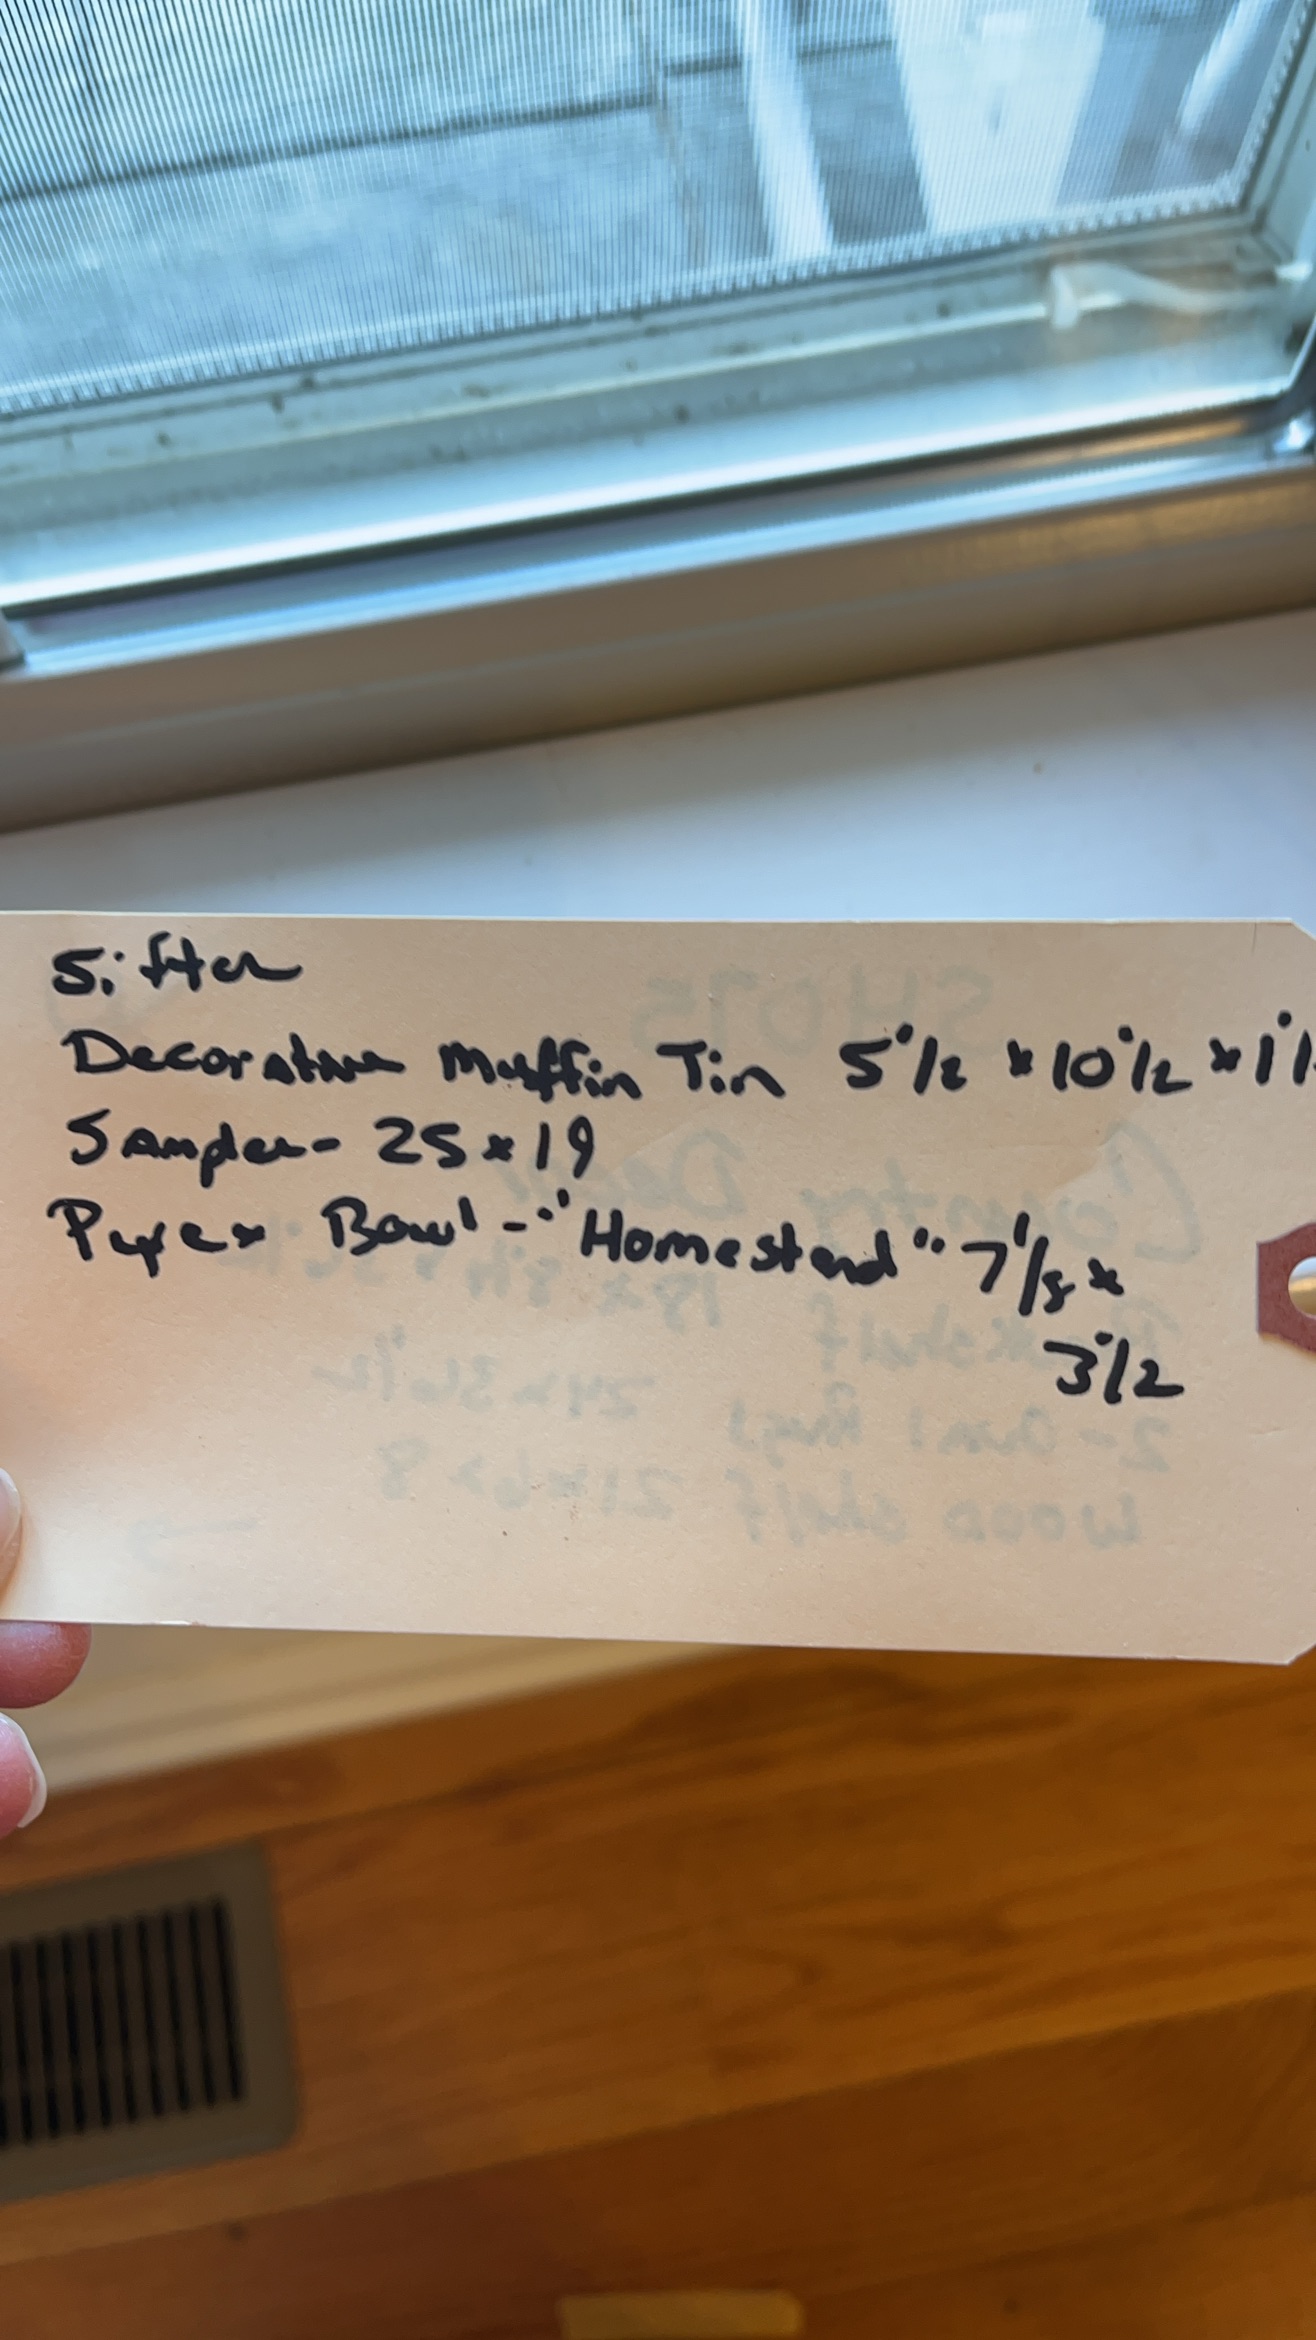 Sifter
Decorative Muffin Tin 5 1/2 x 10 1/2 x 1 1/
Sampler - 25 x 19
Pyrex Bowl - "Homestead" 7 1/8 x
3 1/2